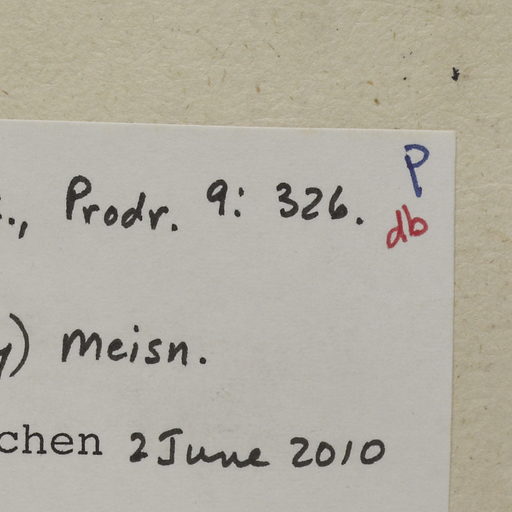 ., Prodr. 9: 326. P
db
) Meisn.
chen 2 June 2010